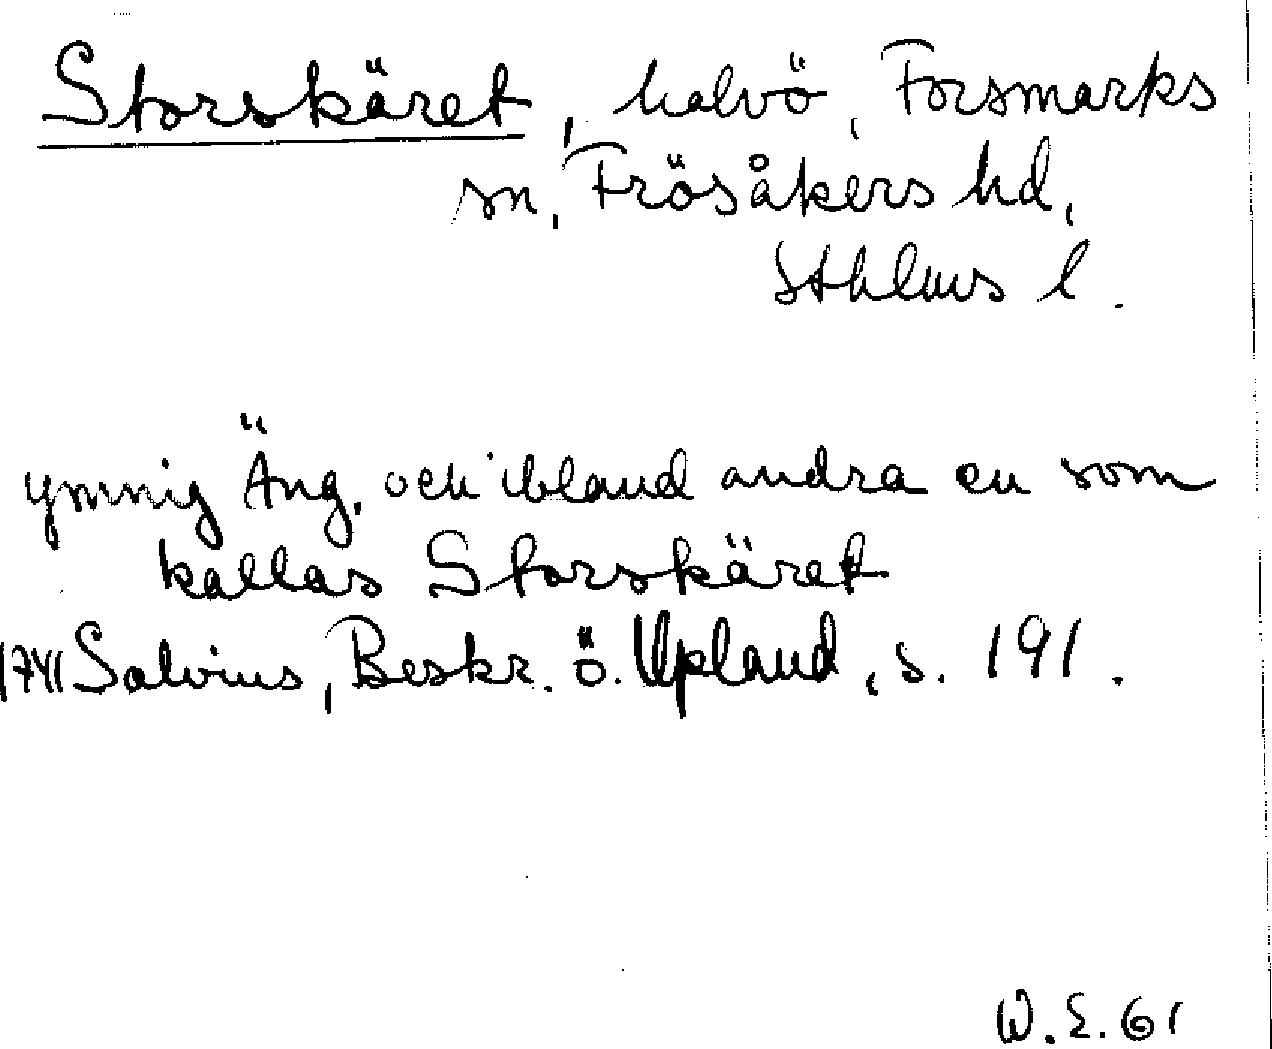 Storskäret, halvö, Forsmarks
sn, Frösåkers hd,
Sthlms l.
ymnig Äng, och ibland andra en som
kallas Storskäret
1741 Salvius, Beskr. ö. Upland, s. 191.
W.E. 61